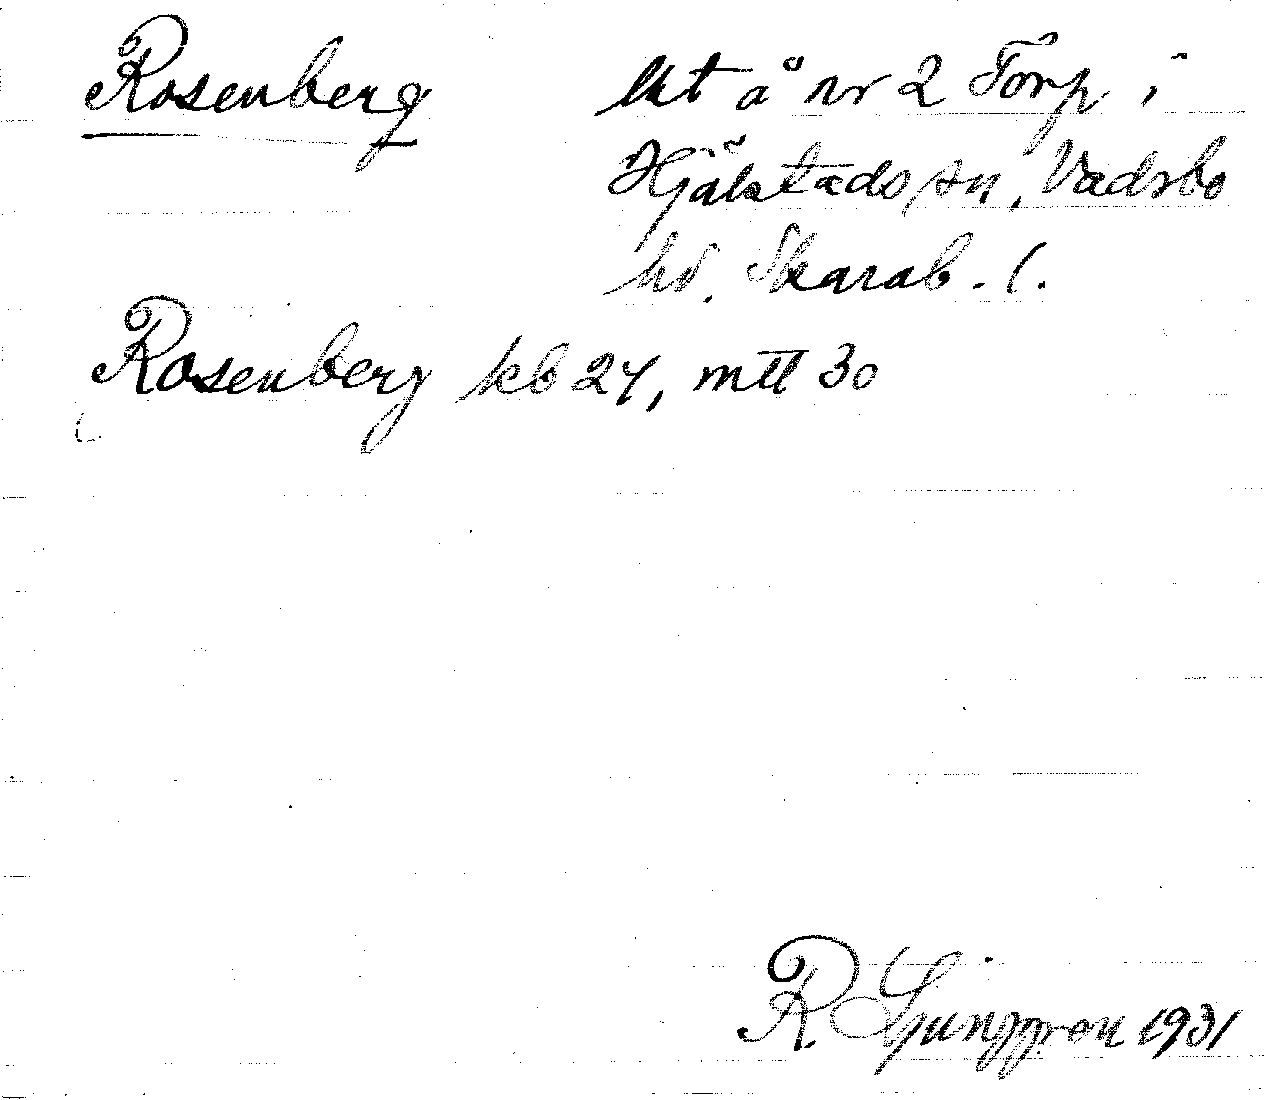 Rosenberg lht å nr 2 Torp i
Hjälstads sn, Vadsbo
hd. Skarab. l.
Rosenberg kb 24, mtl 30
R. Ljunggren 1931